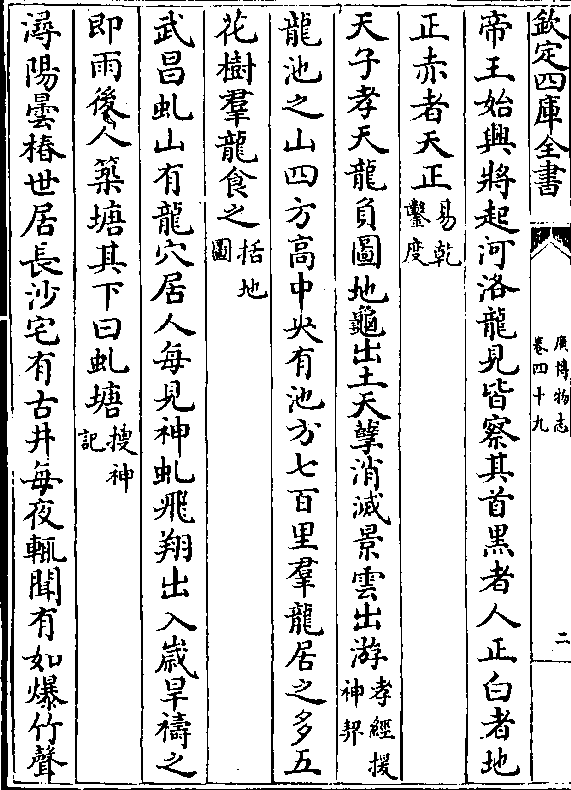 欽定四庫全書
廣博物志
卷四十九
二
帝王始興將起河洛龍見皆察其首黒者人正白者地
正赤者天正易乾
鑿度
天子孝天龍負圖地龜出土天孽消滅景雲出游孝經援
神契
龍池之山四方高中央有池方七百里羣龍居之多五
花樹羣龍食之括地
圖
武昌虬山有龍穴居人每見神虬飛翔出入嵗旱禱之
即雨後人築塘其下曰虬塘搜神
記
潯陽曇椿世居長沙宅有古井每夜輒聞有如爆竹聲